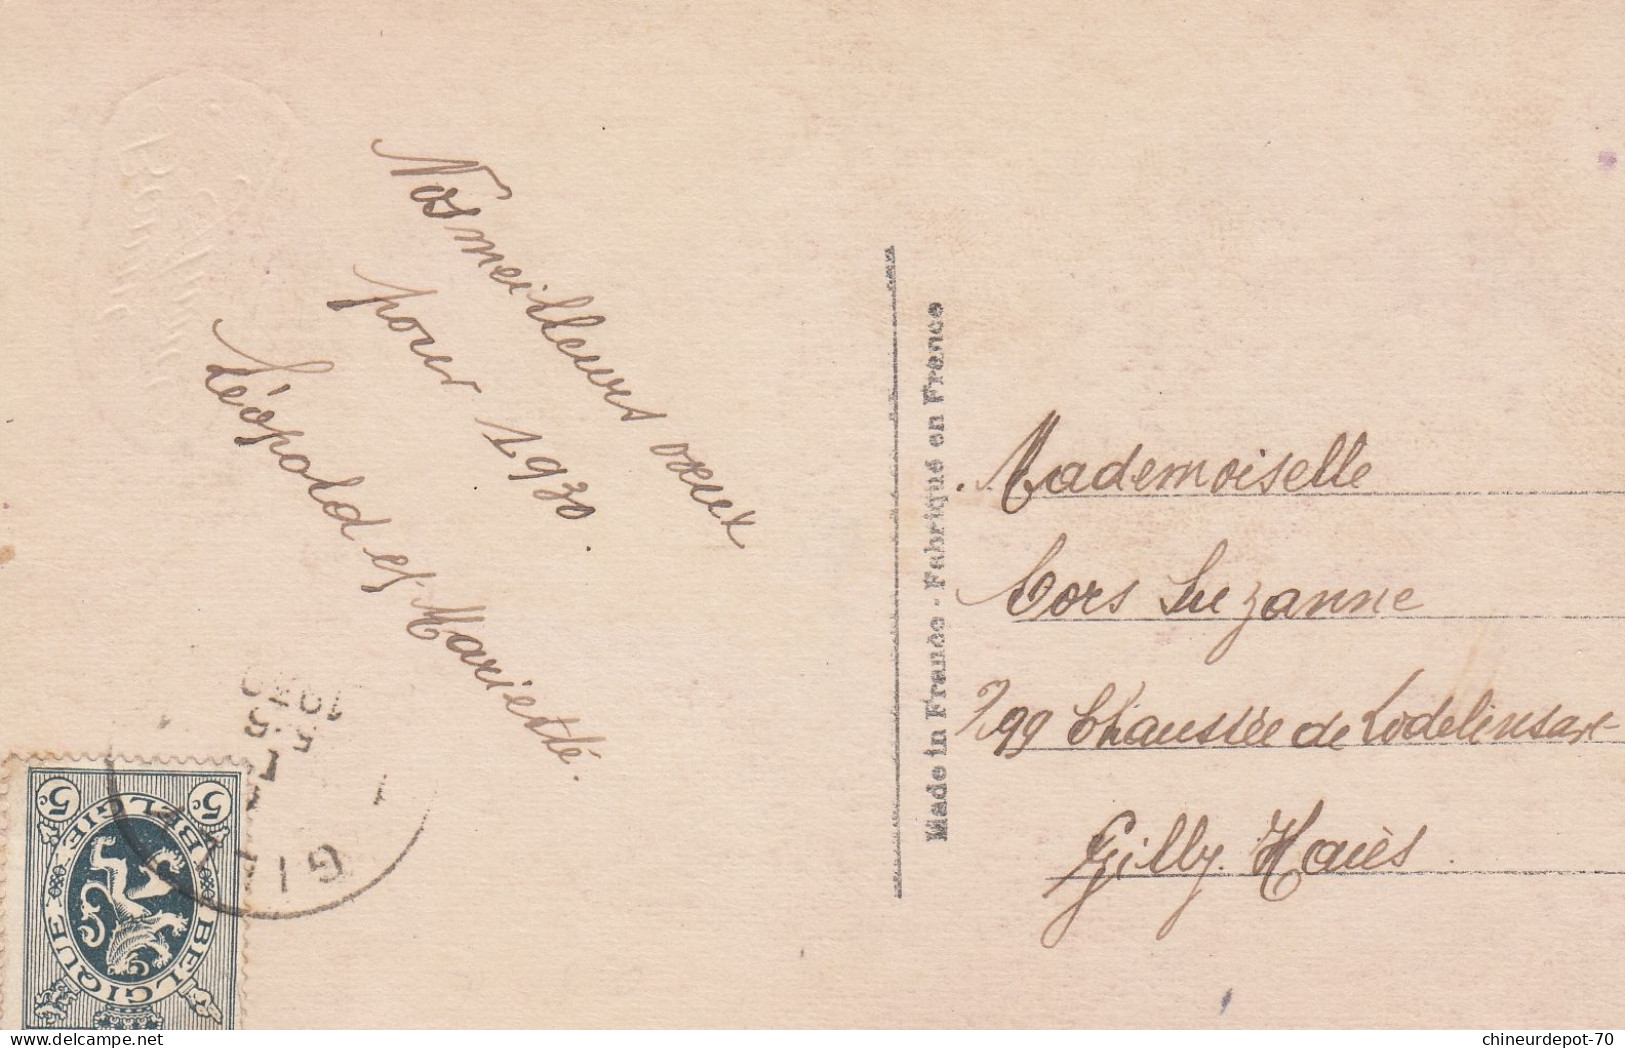 Nos meilleurs vœux
pour 1930.
Léopold et Mariette.
Made in France - Fabriqué en France
Mademoiselle
Cors Suzanne
299 Chaussée de Lodelinsart
Gilly. Haies
1930
GILLY
5c 5c
BELGIE - BELGIQUE
chineurdepot-70